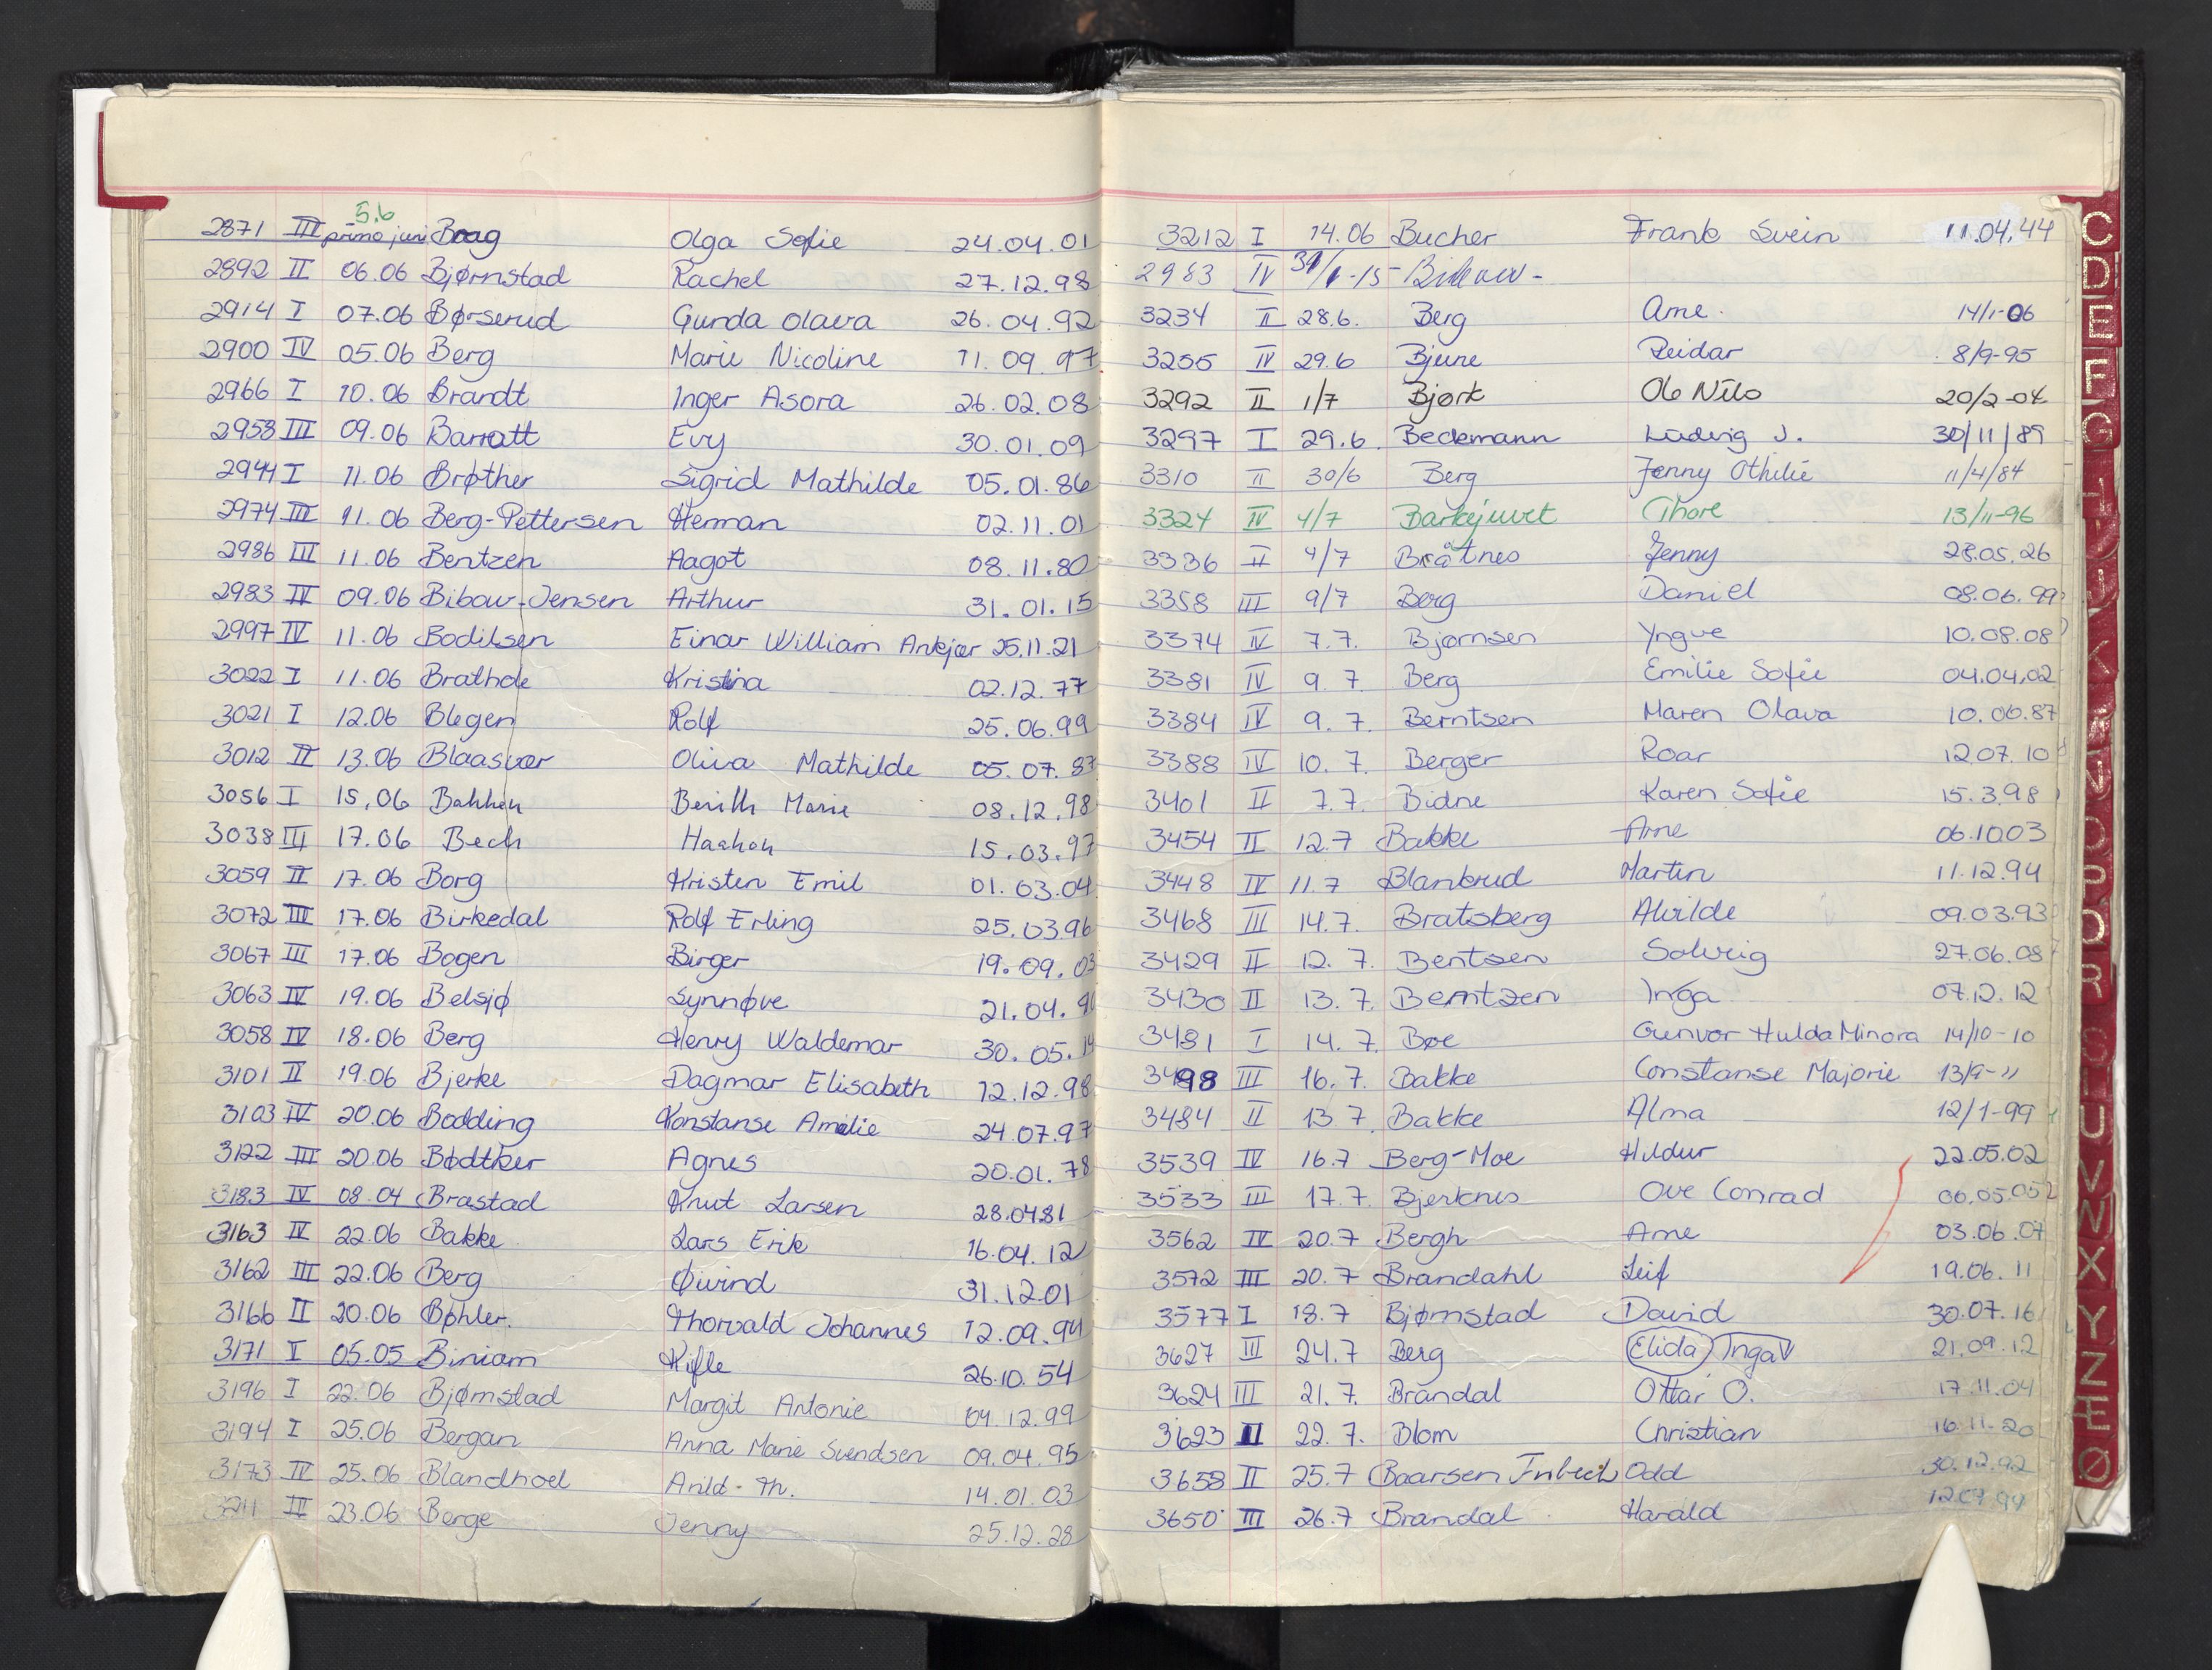 5.6
2871 III primo juni Brag Olga Sofie 24.04.01
2892 II 06.06 Bjørnstad Rachel 27.12.98
2914 I 07.06 Børserud Gunda Olava 26.04.92
2900 IV 05.06 Berg Marie Nicoline 11.09.97
2966 I 10.06 Brandt Inger Asora 26.02.08
2958 III 09.06 Barratt Evy 30.01.09
2944 I 11.06 Brøther Sigrid Mathilde 05.01.86
2974 III 11.06 Berg-Pettersen Herman 02.11.01
2986 III 11.06 Bentzen Aagot 08.11.80
2983 IV 09.06 Bibow-Jensen Arthur 31.01.15
2997 IV 11.06 Bodilsen Einar William Ankjær 25.11.21
3022 I 11.06 Brathole Kristina 02.12.77
3021 I 12.06 Blegen Rolf 25.06.99
3012 II 13.06 Blaasvær Oliva Mathilde 05.07.87
3056 I 15.06 Bakken Berith Marie 08.12.98
3038 III 17.06 Bech Haakon 15.03.97
3059 II 17.06 Borg Kristen Emil 01.03.04
3072 III 17.06 Birkedal Rolf Erling 25.03.96
3067 III 17.06 Bogen Birger 19.09.03
3063 IV 19.06 Belsjø Synnøve 21.04.90
3058 IV 18.06 Berg Henry Waldemar 30.05.14
3101 II 19.06 Bjerke Dagmar Elisabeth 12.12.98
3103 IV 20.06 Bodding Konstanse Amalie 24.07.97
3122 III 20.06 Bødtker Agnes 20.01.78
3183 IV 08.04 Brastad Knut Larsen 28.04.81
3163 IV 22.06 Bakke Lars Erik 16.04.12
3162 III 22.06 Berg Øivind 31.12.01
3166 II 20.06 Bøhler. Thorvald Johannes 12.09.94
3171 I 05.05 Biniam Kifle 26.10.54
3196 I 22.06 Bjørnstad Margit Antonie 04.12.99
3194 I 25.06 Bergan Anna Marie Svendsen 09.04.95
3173 IV 25.06 Blandhoel Arild-Th. 14.01.03
3211 IV 23.06 Berge Jenny 25.12.28
3212 I 14.06 Bucher Frank Svein 11.04.44
2983 IV 31/1-15 Bibow-
3234 II 28.6. Berg Arne. 14/1-06
3255 IV 29.6 Bjune Reidar 8/9-95
3292 II 1/7 Bjørk Ole Nils 20/2-04
3297 I 29.6. Beckmann Ludvig J. 30/11/89
3310 II 30/6 Berg Jenny Othilie 11/4/84
3324 IV 4/7 Barkejuvet Thore 13/11-96
3336 II 4/7 Bråtnes Jenny 28.05.26
3358 III 9/7 Berg Daniel 08.06.99
3374 IV 7.7. Bjørnsen Yngve 10.08.08
3381 IV 9.7. Berg Emilie Sofie 04.04.02
3384 IV 9.7. Berntsen Maren Olava 10.06.87
3388 IV 10.7. Berger Roar 12.07.10
3401 II 7.7. Bidne Karen Sofie 15.3.98
3454 II 12.7 Bakke Arne 06.10.03
3448 IV 11.7 Blankrud Martin 11.12.94
3468 III 14.7. Bratsberg Alvilde 09.03.93
3429 II 12.7. Bentsen Solveig 27.06.08
3430 II 13.7. Berntzen Inga 07.12.12
3481 I 14.7. Bøe Gunvor Hulda Minora 14/10-10
3498 III 16.7. Bakke Constanse Majorie 13/9-11
3484 II 13.7. Bakke Alma 12/1-99
3539 IV 16.7 Berg-Moe Hildur 22.05.02
3533 III 17.7. Bjerknes Ove Conrad 06.05.05
3562 IV 20.7 Bergh Arne 03.06.07
3572 III 20.7 Brandahl Leif 19.06.11
3577 I 18.7 Bjørnstad David 30.07.16
3627 III 24.7 Berg Elida Inga 21.09.12
3624 III 21.7. Brandal Ottar O. 17.11.04
3623 II 22.7. Blom Christian 16.11.20
3658 II 25.7 Baarsen Odd 30.12.92
3650 III 26.7 Brandal Harald 12.07.94
C
D
E
F
G
I
J
K
N
O
P
R
S
U
V
X
Y
Z
Æ
Ø